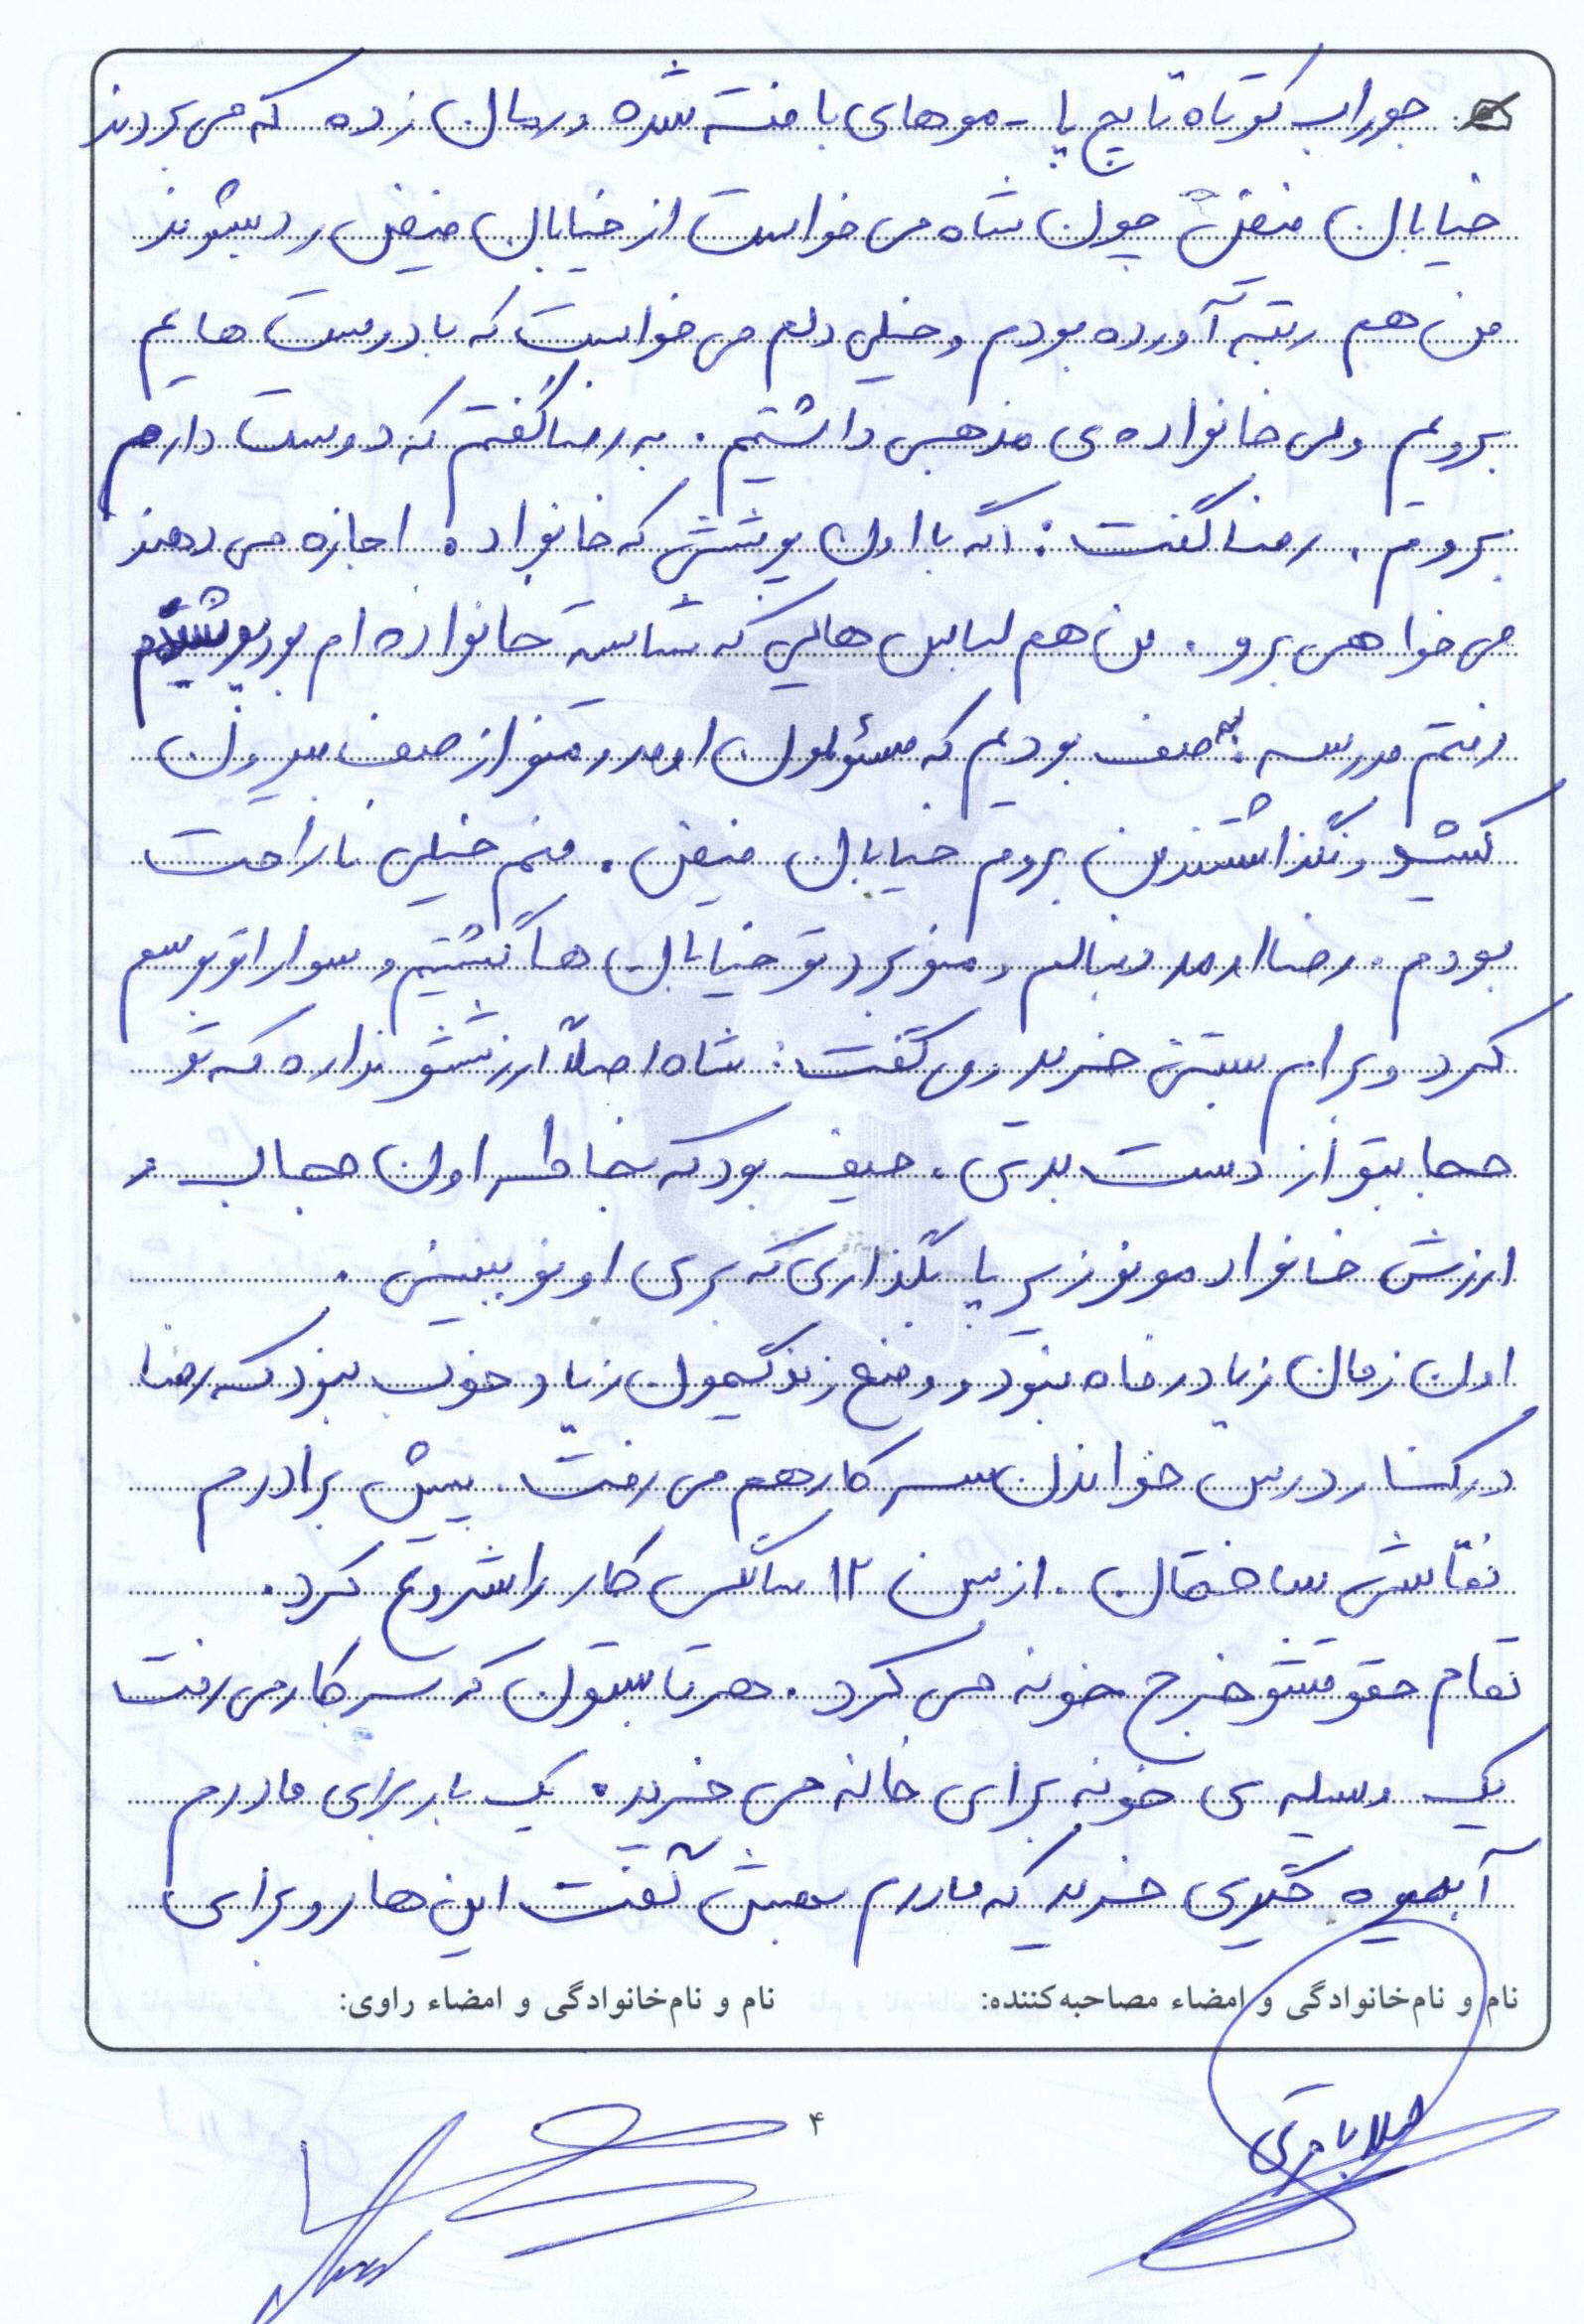 جوراب کوتاه تا مچ پا - موهای بافته شده و رمان زده که می بردند
خیابان فیض چون شاه می خواست از خیابان فیض رد بشوند
من هم رتبه آورده بودم و خیلی دلم می خواست که با دوست هایم
برویم ولی خانواده ی مذهبی داشتیم. به رضا گفتم که دوست دارم
بروم، رضا گفت: اگه با اون پوشش که خانواده اجازه می دهند
می خواهی برو. من هم لباس هایی که شایسته خانواده ام بود پوشیدم
رفتم مدرسه به صف بودیم که مسئولمون اومد و منو از صف بیرون
کشید و نگذاشتند من بروم خیابان فیض. منم خیلی ناراحت
بودم. رضا اومد دنبالم و منو برد تو خیابان ها گشتیم و سوار اتوبوسم
کرد و برام بستنی خرید و می گفت: شاه اصلاً ارزششو نداره که تو
حجابتو از دست بدی، حیف بود که بخاطر اون حجاب و
ارزش خانوادمونو زیر پا بگذاری که بری اونو ببینی.
اون زمان زیاد رفاه نبود و وضع زندگیمون زیاد خوب نبود که رضا
در کنار درس خواندن سر کار هم می رفت. پیش برادرم
نقّاش ساختمان. از سن ۱۲ سالگی کار را شروع کرد.
تمام حقوقشو خرج خونه می کرد. هر تابستون که سر کار می رفت
یک وسیله ی خونه برای خانه می خرید. یک بار برای مادرم
آبمیوه گیری خرید که مادرم بهش گفت این ها رو برای
نام و نام‌خانوادگی و امضاء مصاحبه‌کننده: نام و نام‌خانوادگی و امضاء راوی:
۴